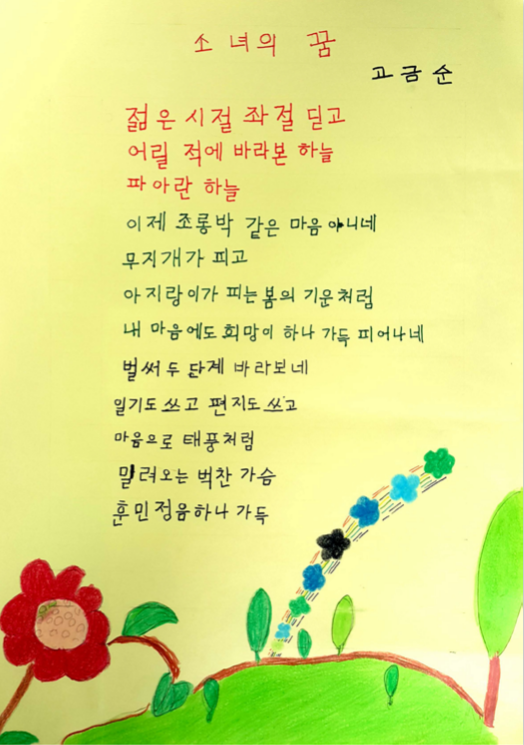 소녀의 꿈
고금순
젊은 시절 좌절 딛고
어릴 적에 바라본 하늘
파아란 하늘
이제 조롱박 같은 마음 아니네
무지개가 피고
아지랑이가 피는 봄의 기운처럼
내 마음에도 희망이 하나 가득 피어나네
벌써 두 단계 바라보네
일기도 쓰고 편지도 쓰고
마음으로 태풍처럼
밀려오는 벅찬 가슴
훈민정음 하나 가득